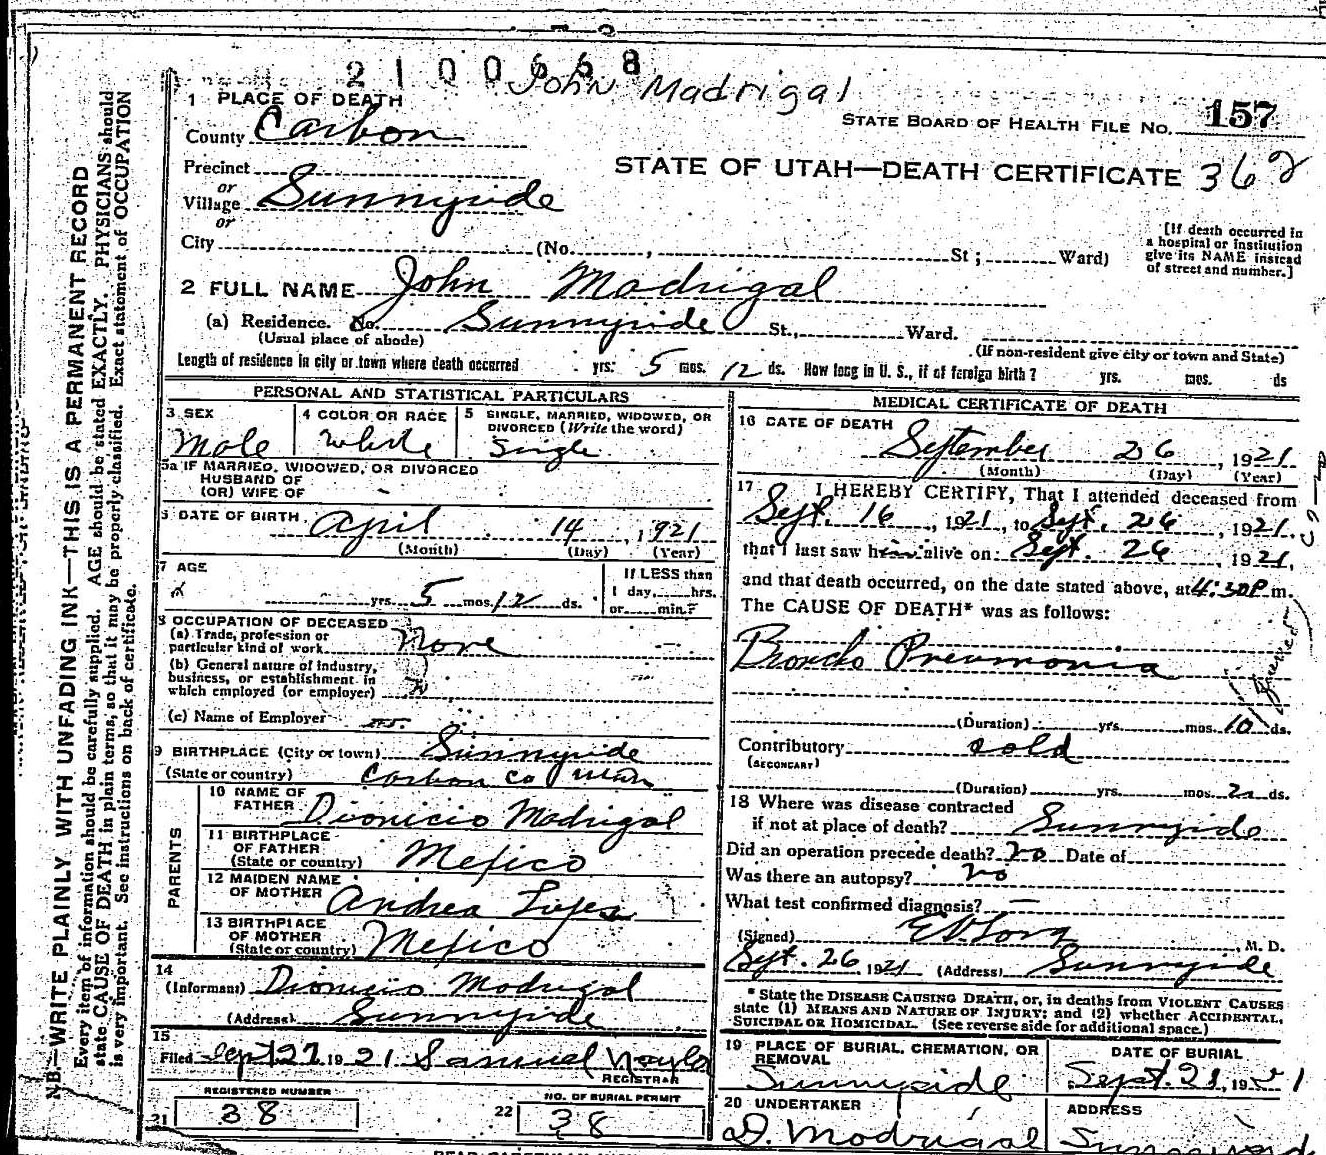 2100668
John Madrigal
1 PLACE OF DEATH
STATE BOARD OF HEALTH FILE NO. 157
County Carbon
STATE OF UTAH—DEATH CERTIFICATE 362
Precinct
or
Village Sunnyside
or
City (No. , St ; Ward)
[If death occurred in
a hospital or institution
give its NAME instead
of street and number.]
2 FULL NAME John Madrigal
(a) Residence. No. Sunnyside St., Ward.
(Usual place of abode) (If non-resident give city or town and State)
Length of residence in city or town where death occurred yrs. 5 mos. 12 ds. How long in U. S., if of foreign birth? yrs. mos. ds
N.B.—WRITE PLAINLY WITH UNFADING INK—THIS IS A PERMANENT RECORD
Every item of information should be carefully supplied. AGE should be stated EXACTLY. PHYSICIANS should
state CAUSE OF DEATH in plain terms, so that it may be properly classified. Exact statement of OCCUPATION
is very important. See instructions on back of certificate.
PERSONAL AND STATISTICAL PARTICULARS
3 SEX
Male
4 COLOR OR RACE
White
5 SINGLE, MARRIED, WIDOWED, OR
DIVORCED (Write the word)
Single
5a IF MARRIED, WIDOWED, OR DIVORCED
HUSBAND OF
(OR) WIFE OF -
6 DATE OF BIRTH April 14, 1921
(Month) (Day) (Year)
7 AGE
yrs. 5 mos. 12 ds.
If LESS than
1 day, hrs.
or min.?
8 OCCUPATION OF DECEASED
(a) Trade, profession or
particular kind of work None
(b) General nature of industry,
business, or establishment in
which employed (or employer)
(c) Name of Employer
9 BIRTHPLACE (City or town) Sunnyside
(State or country) Carbon Co Utah
PARENTS
10 NAME OF
FATHER Dionicio Madrigal
11 BIRTHPLACE
OF FATHER
(State or country) Mexico
12 MAIDEN NAME
OF MOTHER Andrea
13 BIRTHPLACE
OF MOTHER
(State or country) Mexico
14
(Informant) Dionicio Madrigal
(Address) Sunnyside
15
Filed Sept 27 1921 Samuel Naylor
REGISTRAR
REGISTERED NUMBER
21 38
NO. OF BURIAL PERMIT
22 38
MEDICAL CERTIFICATE OF DEATH
16 DATE OF DEATH
September 26, 1921
(Month) (Day) (Year)
17 I HEREBY CERTIFY, That I attended deceased from
Sept. 16, 1921, to Sept. 26, 1921.
that I last saw him alive on Sept. 26, 1921,
and that death occurred, on the date stated above, at 4:30P m.
The CAUSE OF DEATH* was as follows:
Broncho Pneumonia
(Duration) yrs. mos. 10 ds.
Contributory cold
(SECONDARY)
(Duration) yrs. mos. ds.
18 Where was disease contracted
if not at place of death? Sunnyside
Did an operation precede death? no Date of
Was there an autopsy? no
What test confirmed diagnosis? —
(Signed) , M. D.
Sept. 26 1921 (Address) Sunnyside
* State the DISEASE CAUSING DEATH, or, in deaths from VIOLENT CAUSES
state (1) MEANS AND NATURE OF INJURY; and (2) whether ACCIDENTAL,
SUICIDAL OR HOMICIDAL. (See reverse side for additional space.)
19 PLACE OF BURIAL, CREMATION, OR
REMOVAL
Sunnyside
DATE OF BURIAL
Sept. , 1921
20 UNDERTAKER
D. Madrigal
ADDRESS